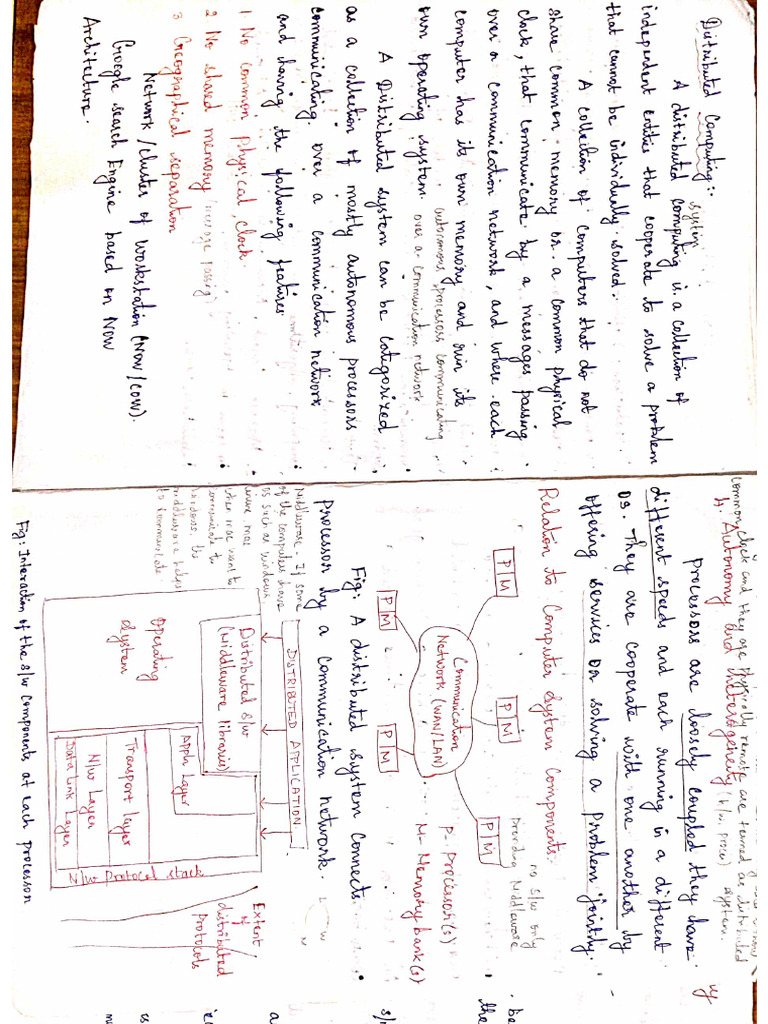 Distributed Computing:
system
A distributed computing is a collection of
independent entitie that cooperate to solve a problem
that cannot be individually solved.
A collection of computers that do not
share common memory or a common physical
clock, that communicate by a messages passing
over a communication network, and where each
computer has its own memory and run its
own operating system.
autonomous processors communicating
over a communication network
A Distributed system can be categorized
as a collection of mostly autonomous processors
communicating over a communication network
and having the following features
1 No common Physical clock
2 No shared memory (message passing)
3 Geographical separation
Network/cluster of workstation (NOW/COW).
Google search Engine based on NOW
Architecture.
common clock and they are physically remote are termed as distributed
system.
4. Autonomy and heterogeneity
Processors are loosely coupled they have
different speeds and each running in a different
OS. They are cooperate with one another by
offering services or solving a problem jointly.
Relation to Computer System Components.
no s/w only
Providing Middleware
P M
P M
P M
Communication
Network (WAN/LAN)
P M
P M
P - Processor(s)
M - Memory bank(s)
Fig: A distributed system connects
Processor by a communication network.
Middleware - If some
of the computers have
OS such as windows
other mac want to
communicate to
windows the
middleware helps
to communicate
DISTRIBUTED APPLICATION
Distributed s/w
(Middleware libraries)
Operating
System
Appln Layer
Transport layer
N/w Layer
Data Link Layer
N/w Protocol stack
Extent
of
distributed
Protocols
Fig: Interaction of the s/w components at each processor